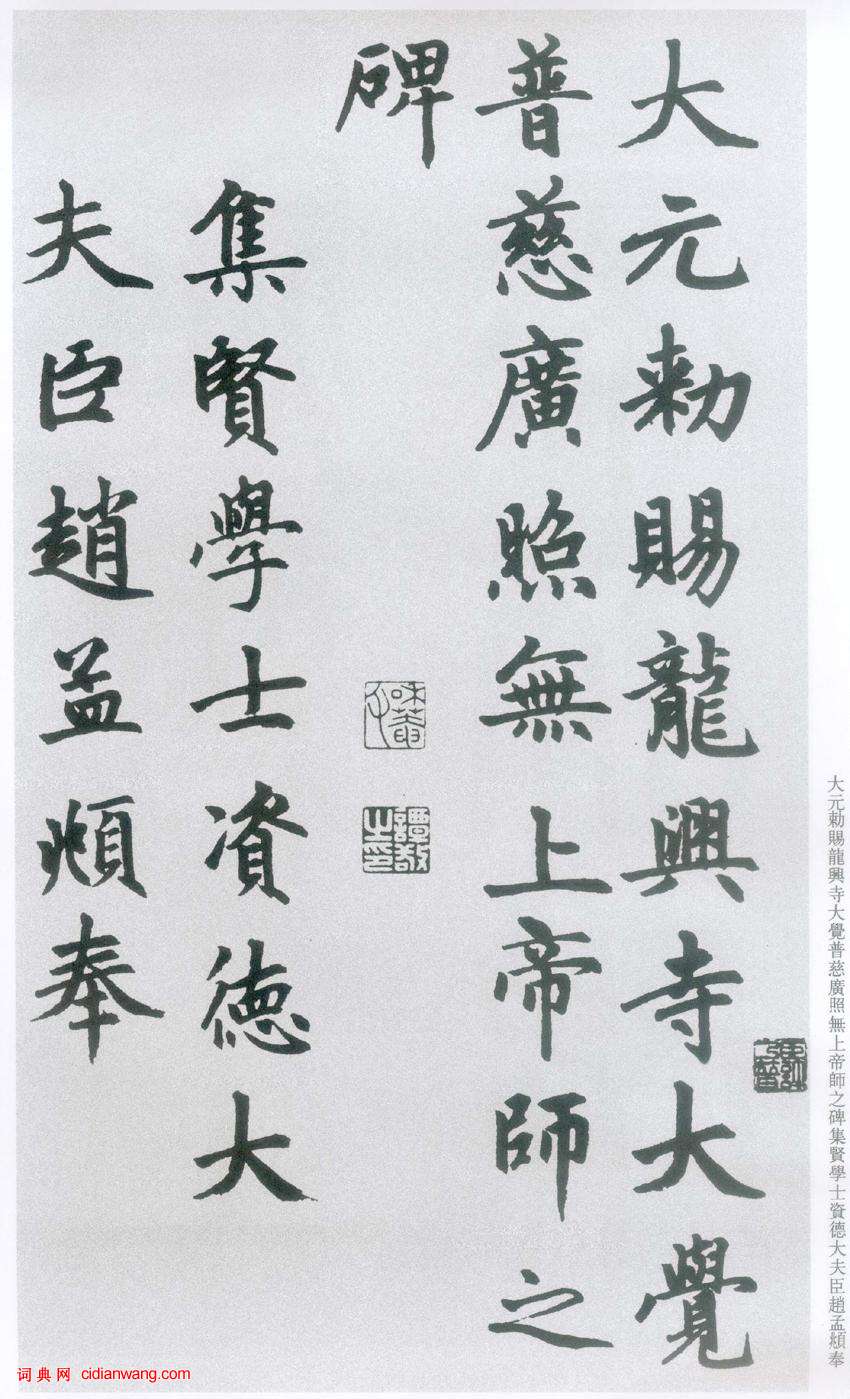 大元勅賜龍興寺大覺
普慈廣照無上帝師之
碑
集賢學士資德大
夫臣趙孟頫奉
譚敬之印
大元勅賜龍興寺大覺普慈廣照無上帝師之碑集賢學士資德大夫臣趙孟頫奉
词典网 cidianwang.com